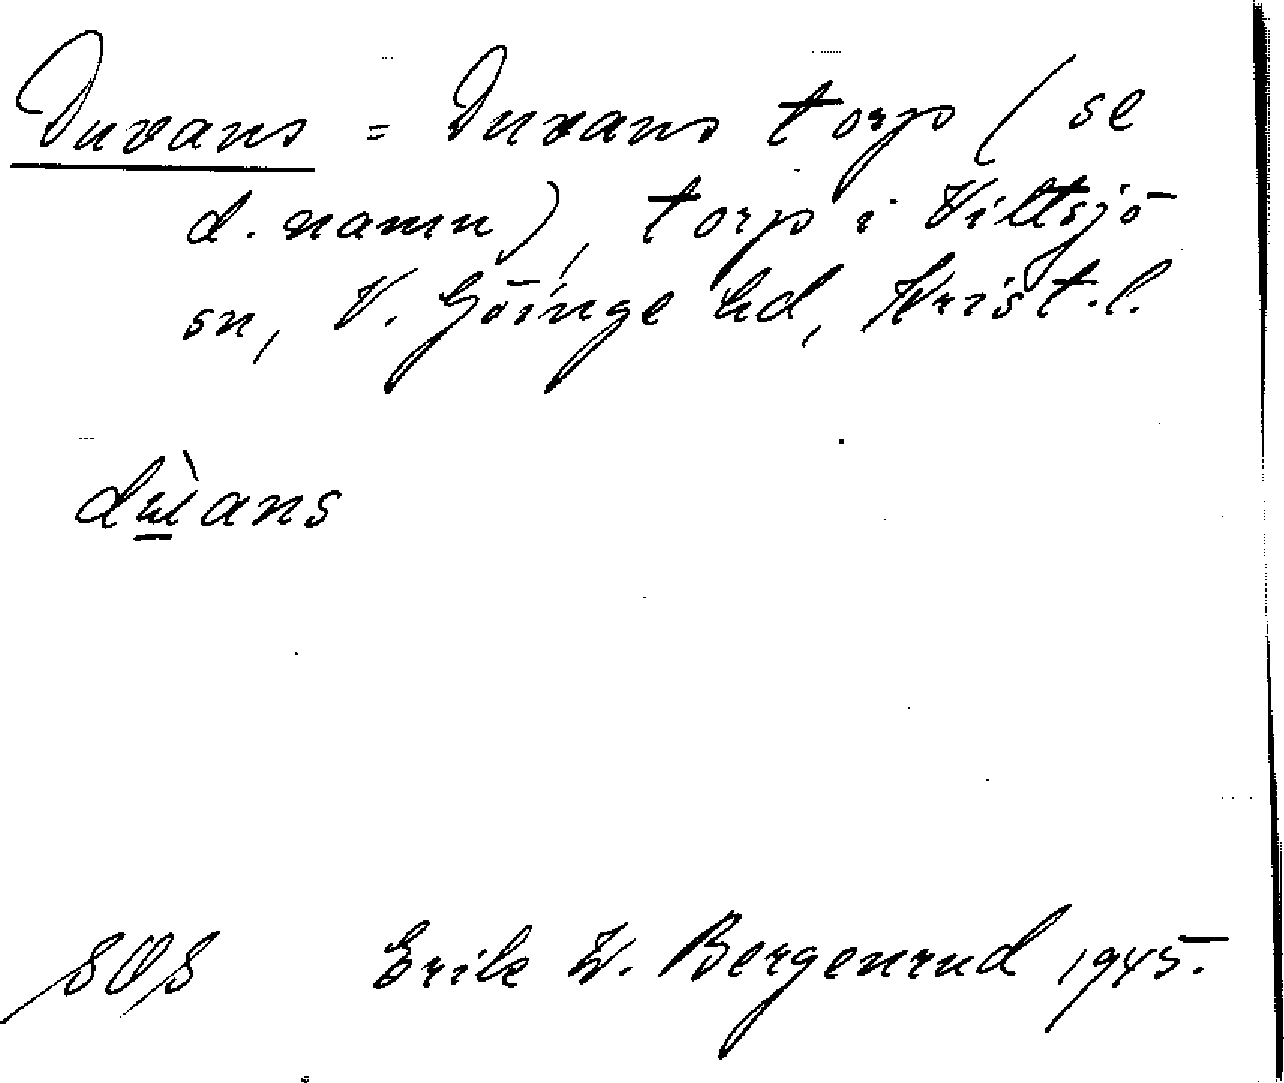 Duvans = Duvans torp (se
d. namn), torp i Vittsjö
sn, V. Göinge hd, Krist. l.
dùans
SOS Erik W. Bergenrud 1945.